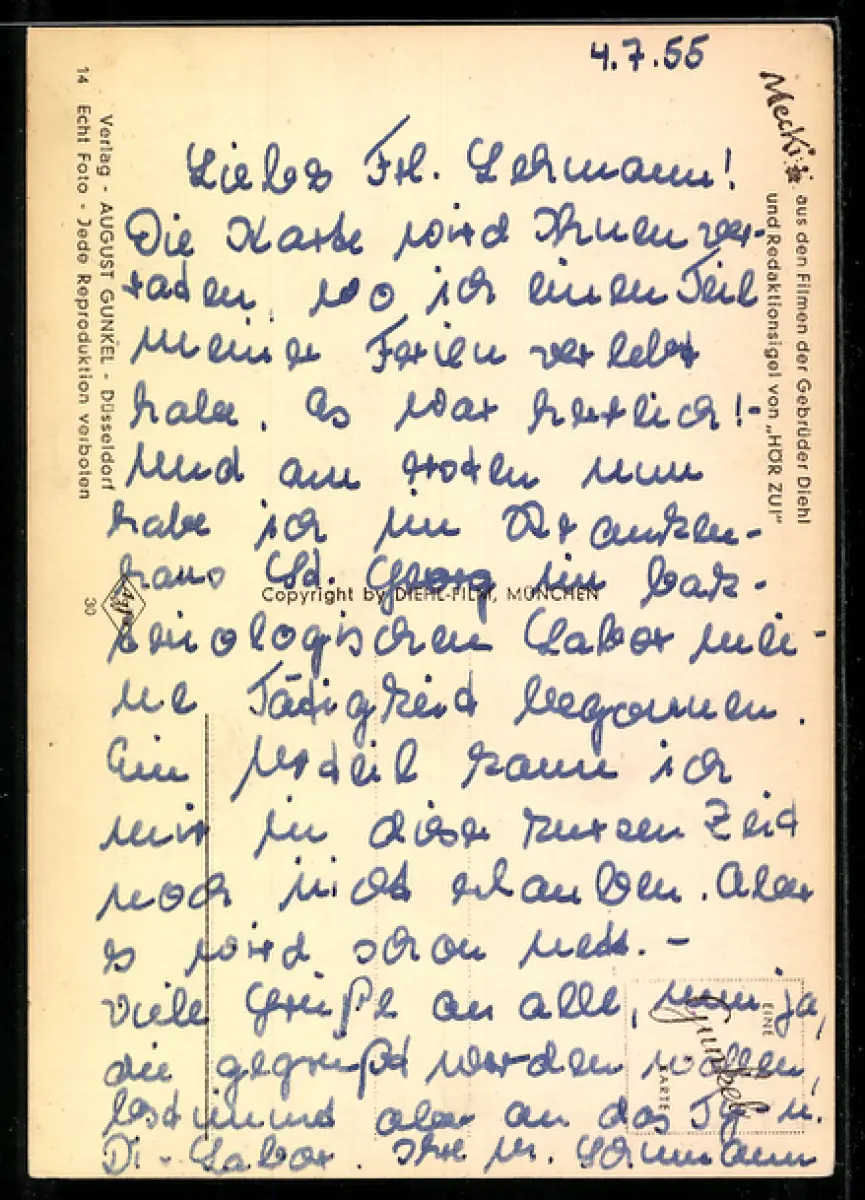 4.7.55
Liebes Frl. Lehmann!
Die Karte wird Ihnen ver-
raten, wo ich einen Teil
meiner Ferien verlebt
habe. Es war herrlich!-
Und am ersten nun
habe ich im Kranken-
haus St. Georg im bak-
teriologischen Labor mei-
ne Tätigkeit begonnen.
Ein Urteil kann ich
mir in dieser kurzen Zeit
noch nicht erlauben. Aber
es wird schon nett. -
Viele Grüße an alle, nun ja,
die gegrüßt werden wollen,
bestimmt aber an das Ty- u.
Di-Labor. Ihre M. Schumann
Mecki
aus den Filmen der Gebrüder Diehl
und Redaktionsigel von „HÖR ZU!"
Verlag - AUGUST GUNKEL - Düsseldorf
14 Echt Foto - Jede Reproduktion verboten
30
Agfa
Copyright by DIEHL-FILM, MÜNCHEN
EINE
Gunkel
KARTE